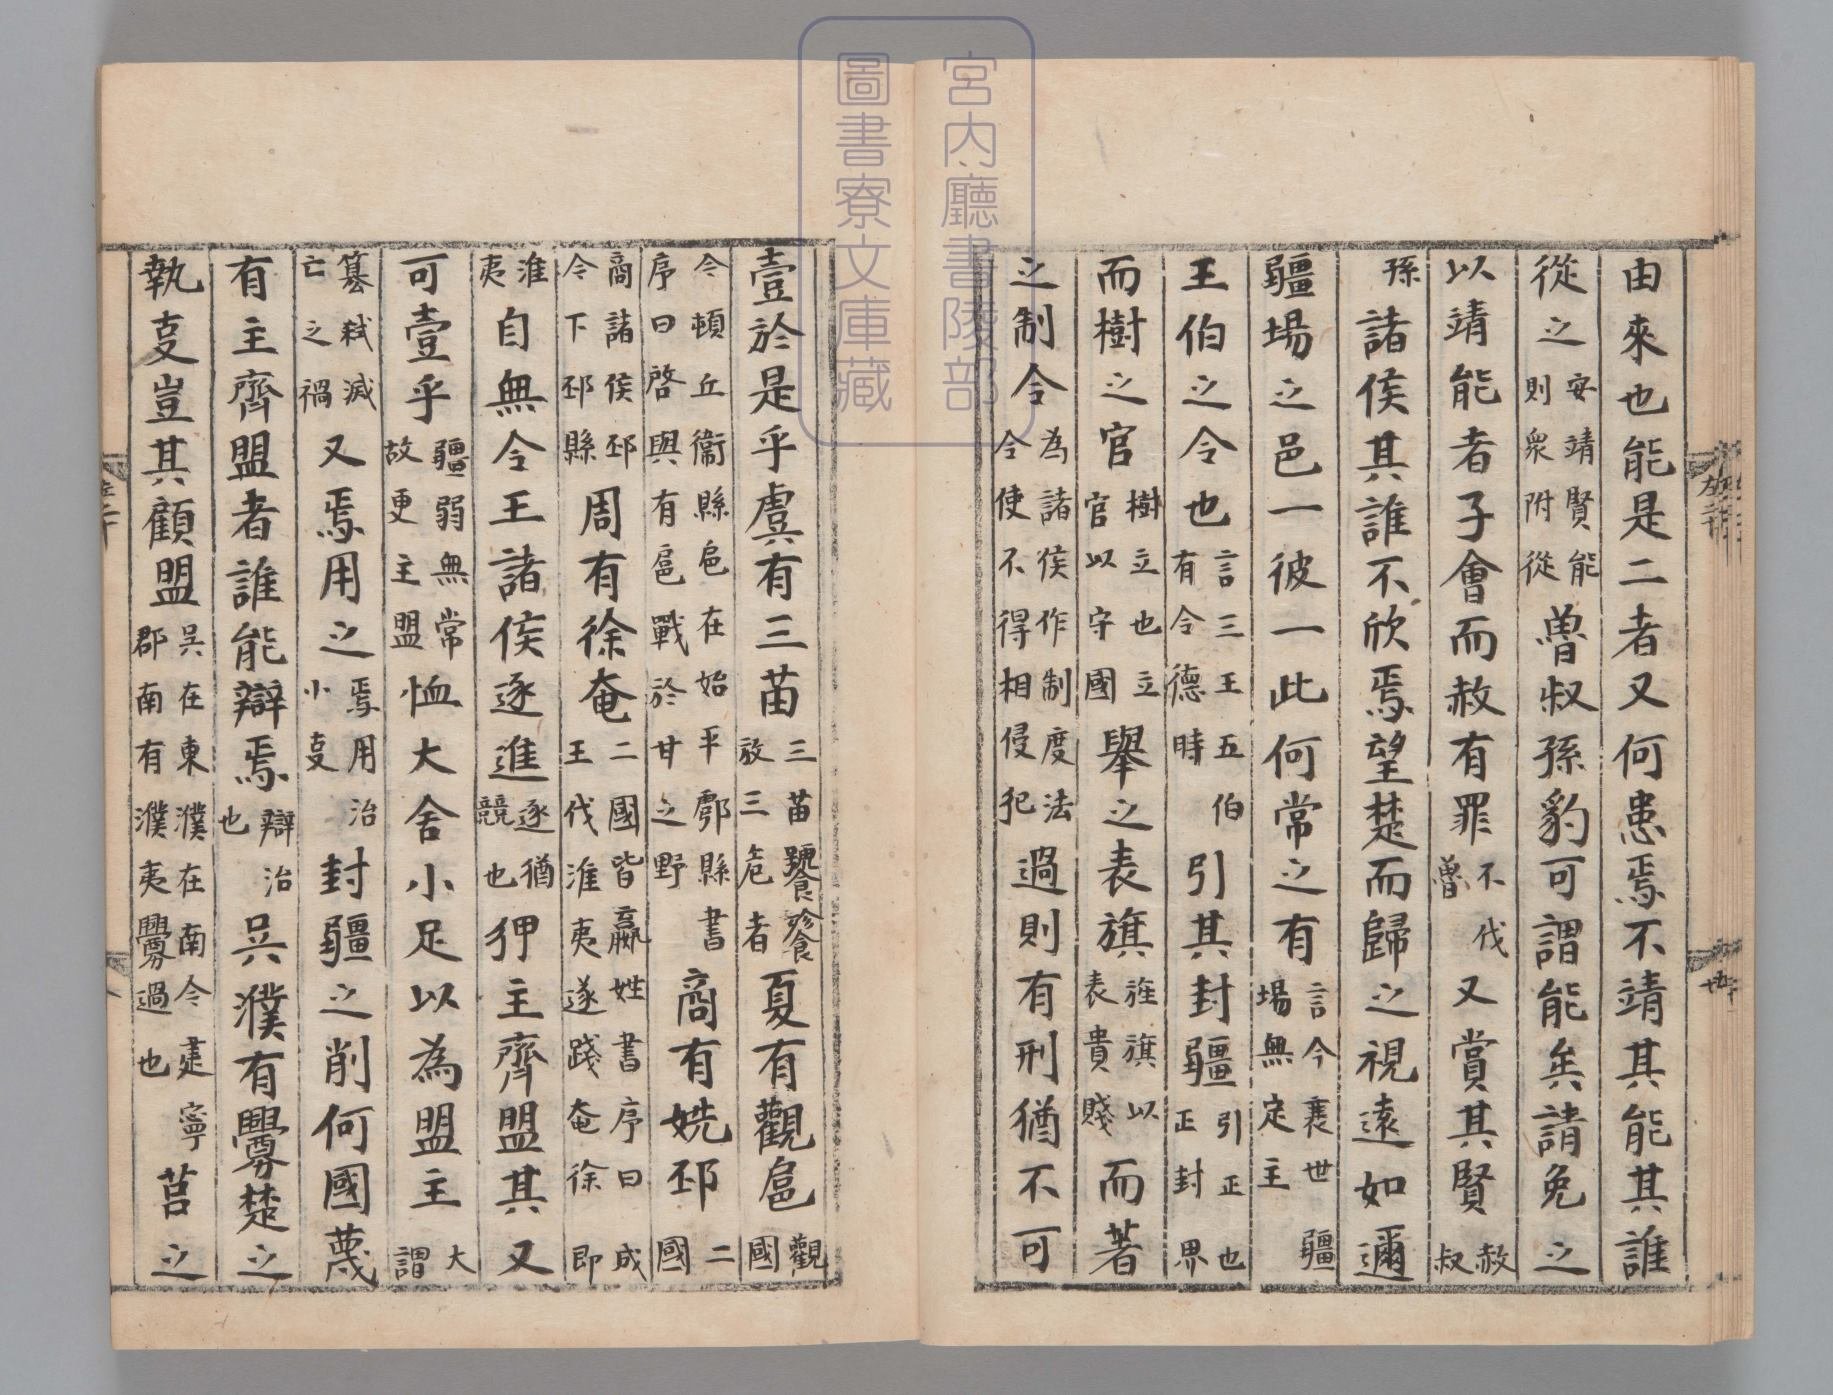 宮内廳書陵部
圖書寮文庫藏
由來也能是二者又何患焉不靖其能其誰
從之安靖賢能則衆附從魯叔孫豹可謂能矣請免之
以靖能者子會而赦有罪不伐魯又賞其賢赦叔
孫諸侯其誰不欣焉望楚而歸之視遠如邇
疆場之邑一彼一此何常之有言今衰世疆場無定主
王伯之令也言三王五伯有令德時引其封疆引正也正封界
而樹之官樹立也立官以守國舉之表旗旌旗以表貴賤而著
之制令為諸侯作制度法令使不得相侵犯過則有刑猶不可
壹於是乎虞有三苗三苗饕餮放三危者夏有觀扈觀國
今頓丘衞縣扈在始平鄠縣書序曰啓與有扈戰於甘之野商有姺邳二國
商諸侯邳今下邳縣周有徐奄二國皆嬴姓書序曰成王伐淮夷遂踐奄徐即
淮夷自無令王諸侯逐進逐猶競也狎主齊盟其又
可壹乎疆弱無常故更主盟恤大舍小足以為盟主大謂
篡弒滅亡之禍又焉用之焉用治小叓封疆之削何國蔑
有主齊盟者誰能辯焉辯治也吳濮有釁楚之
執叓豈其顧盟吳在東濮在南今建寧郡南有濮夷釁過也莒之